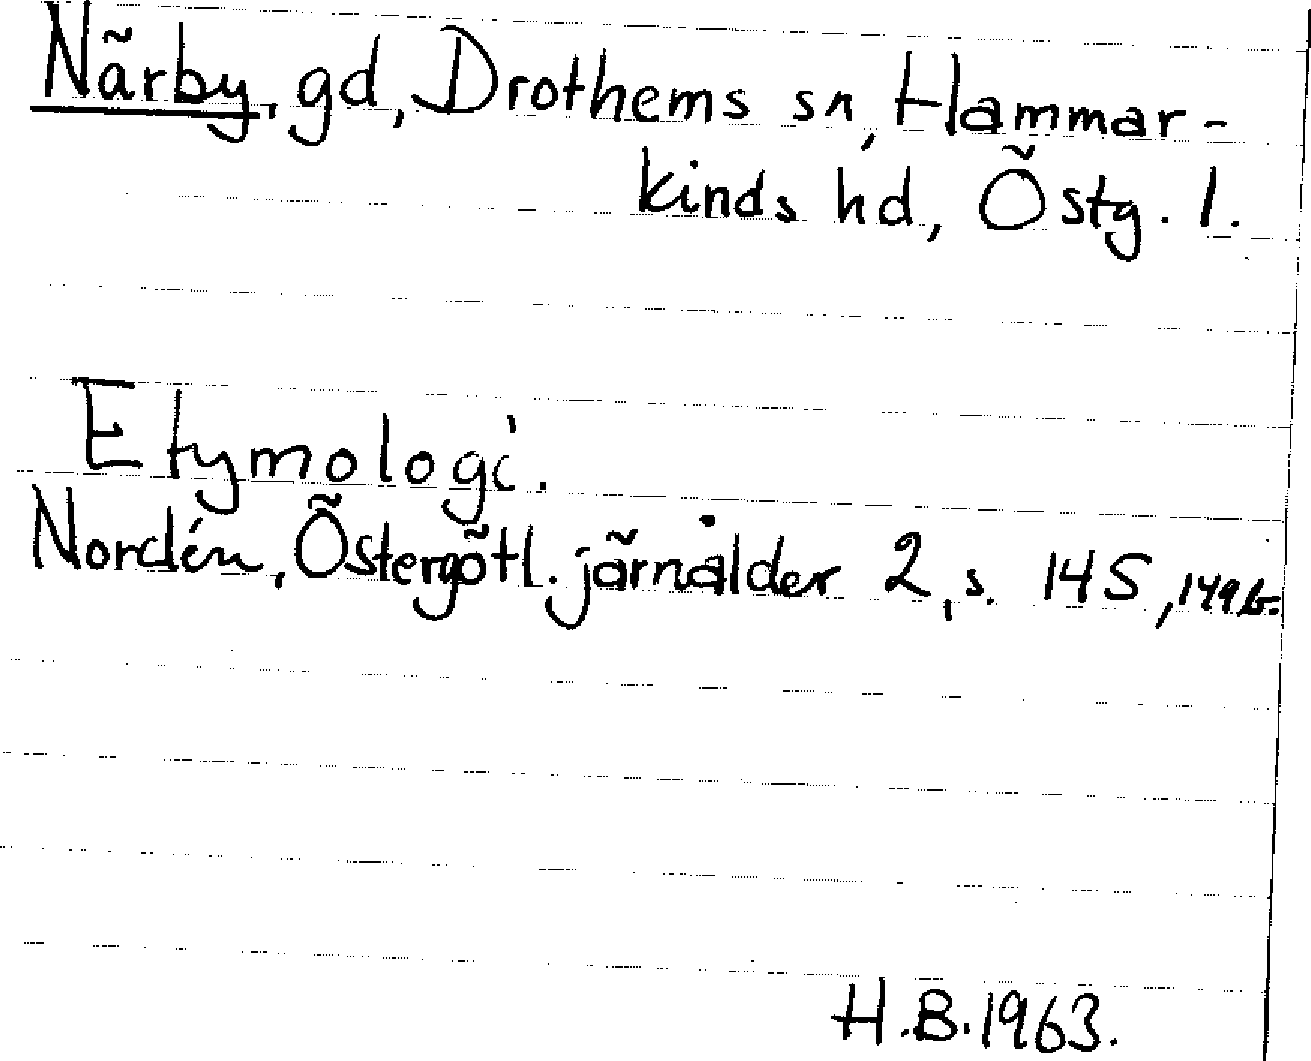 Närby, gd, Drothems sn, Hammar-
kinds hd, Östg. l.
Etymologi.
Nordén, Östergötl. järnålder 2, s. 145,
H.B. 1963.